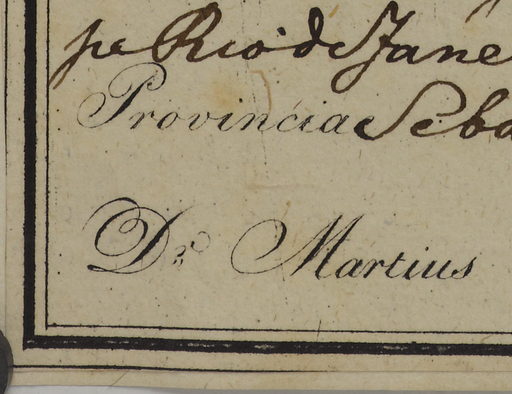 pe Rio de Jane
Provincia Seba
Dr. Martius